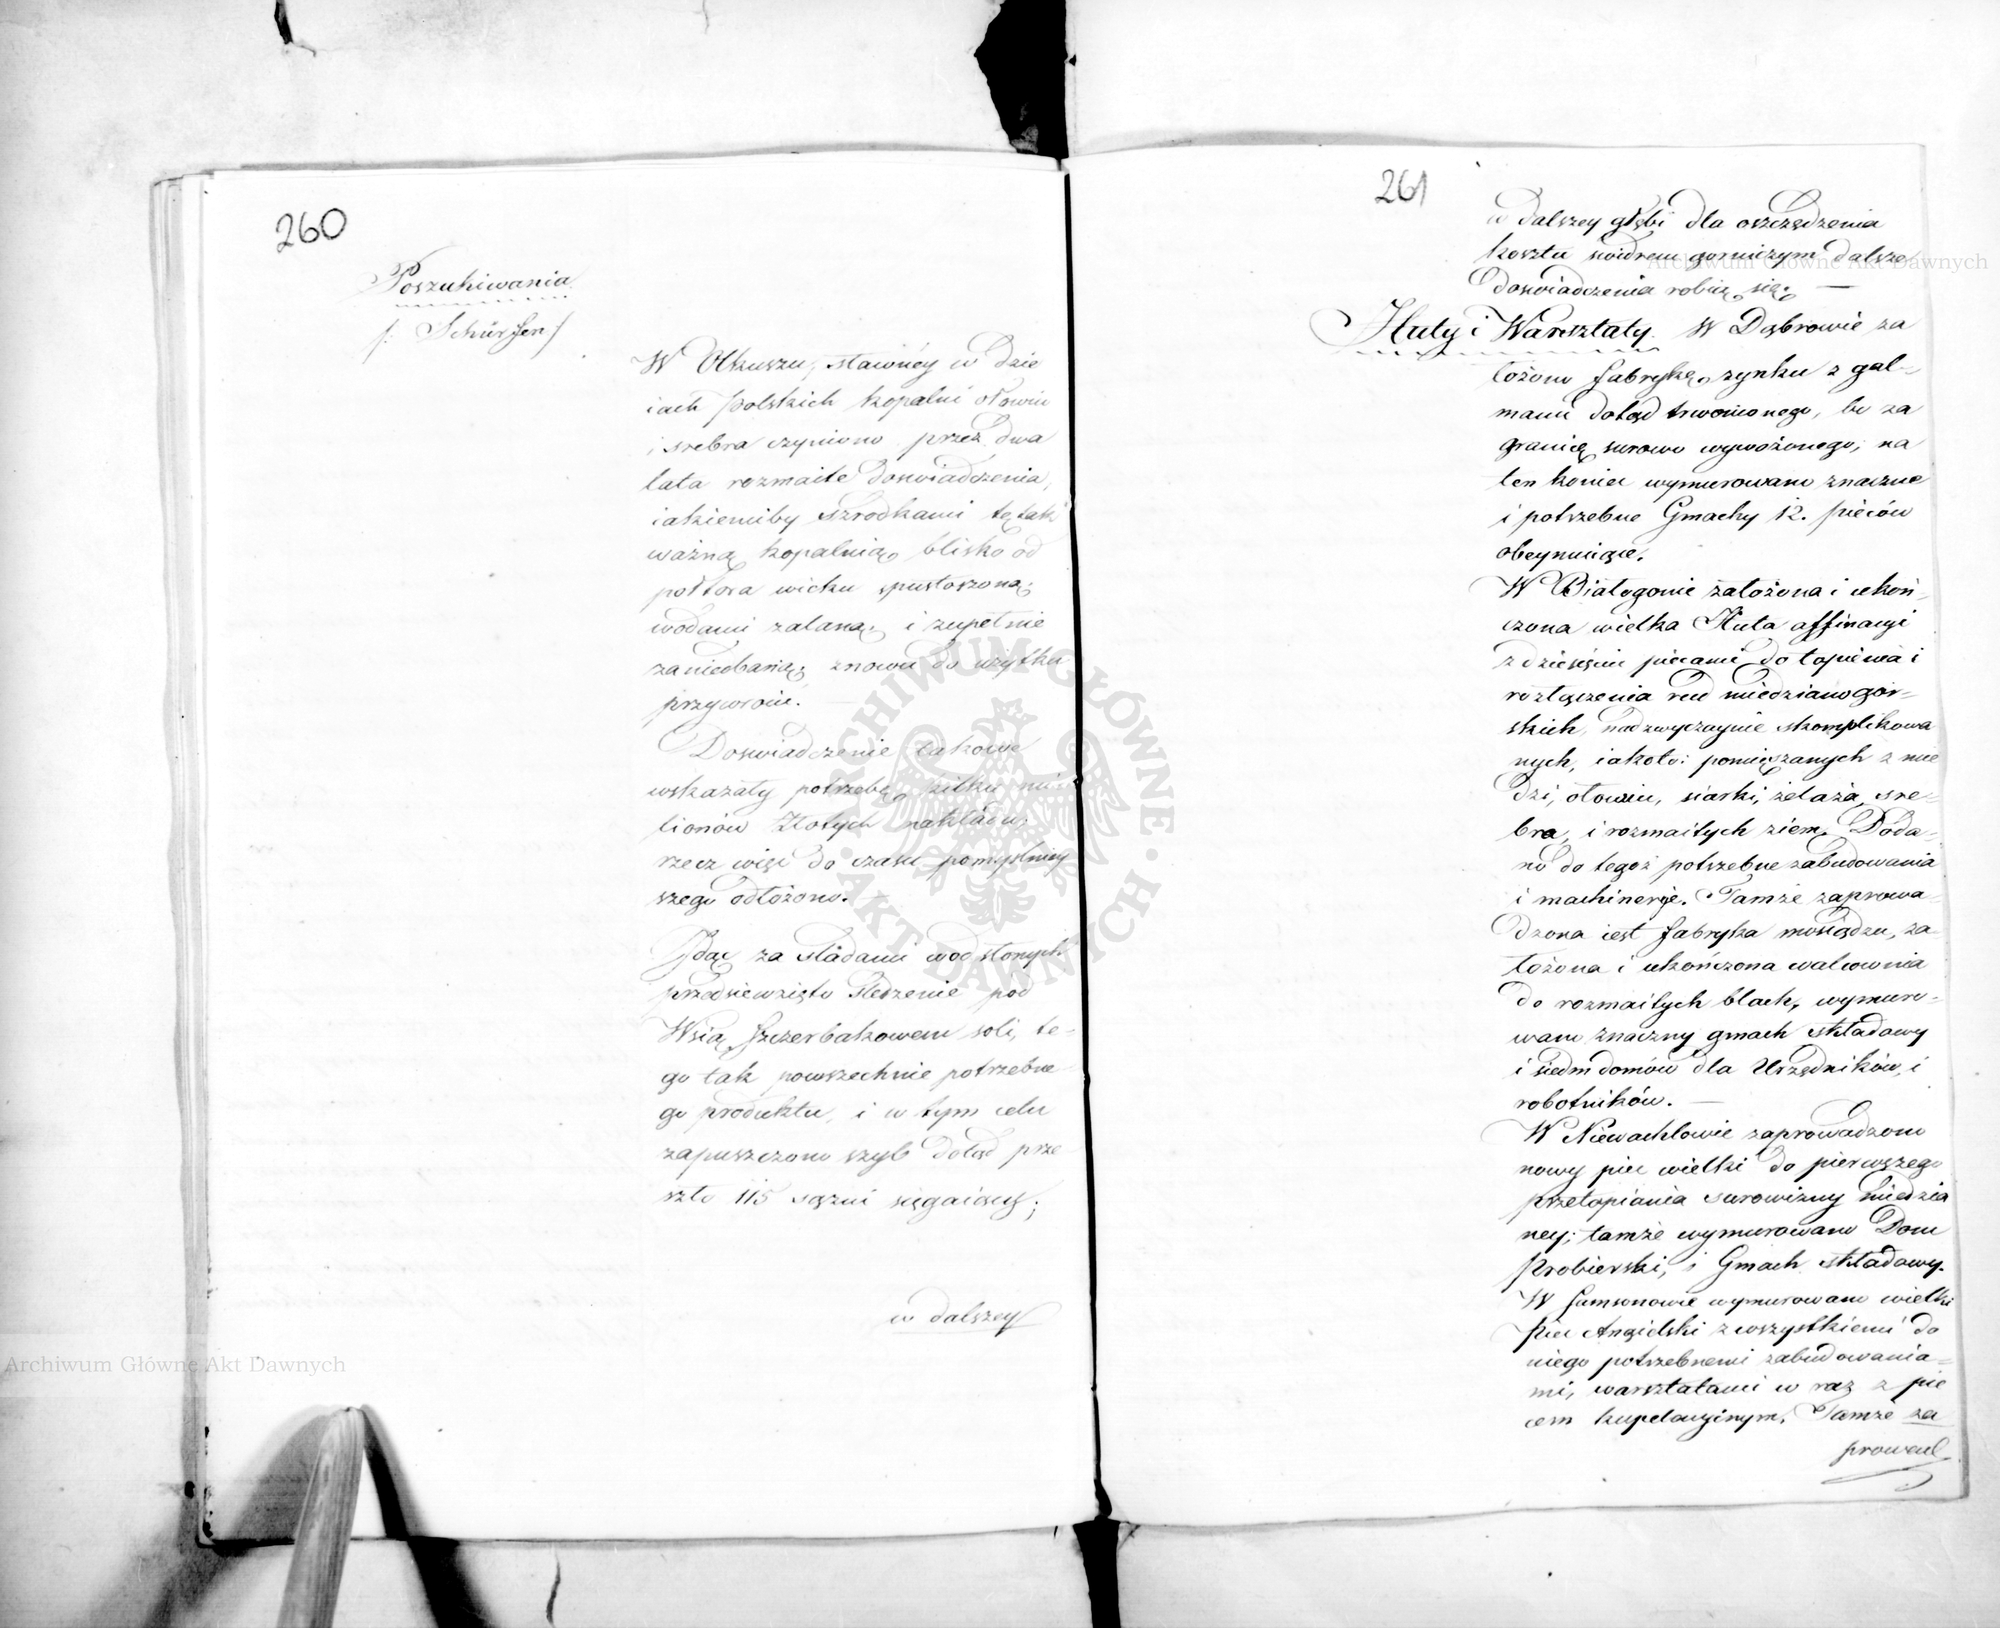 260
Poszukiwania
/: Schürfen /
W Olkuszu, sławney w dzie
iach polskich kopalni ołowiu
i srebra czyniono przez dwa
lata rozmaite doswiadczenia,
iakiemiby szrodkami tę tak
ważną kopalnią blisko od
połtora wieku spustoszoną,
wodami zalaną, i zupełnie
zaniedbaną, znowu do użytku
przywrocić.
Doswiadczenie takowe
wskazały potrzebę kilku mi-
lionów Złotych nakładu;
rzecz więc do czasu pomyślniey
szego odłożono.
Idąc za śladami wod słonych
przedsiewzięto śledzenie pod
Wsią Szczerbakowem soli, te-
go tak powszechnie potrzebne
go produktu, i w tym celu
zapuszczono szyb dotąd prze
szło 115 sążni sięgaiący;
w dalszey
261
w dalszey głębi dla oszczędzenia
kosztu swidrem gorniczym dalsze
doswiadczenia robią się. —
Huty i Warsztaty. W Dąbrowie za
łożono fabrykę zynku z gal-
manu dotąd trwonionego, bo za
granicę surowo wywożonego; na
ten koniec wymurowano znaczne
i potrzebne Gmachy 12. pieców
obeymuiące.
W Białogonie założona i ukoń-
czona wielka Huta affinacyi
z dziesięciu piecami do topienia i
rozłączenia rud miedzianogór-
skich, nadzwyczaynie skomplikowa
nych, iakoto: pomięszanych z mie
dzi, ołowiu, siarki, żelaza, sre-
bra, i rozmaitych ziem. Doda-
no do tegoż potrzebne zabudowania
i machinerje. Tamże zaprowa-
dzona iest fabryka mosiądzu, za-
łożona i ukończona walcownia
do rozmaitych blach, wymuro-
wano znaczny gmach składowy
i siedm domów dla Urzędników, i
robotników. —
W Niewachlowie zaprowadzono
nowy piec wielki do pierwszego
przetopiania surowizny miedzia
ney; tamże wymurowano Dom
Probierski, i Gmach składowy.
W Samsonowie wymurowano wielki
Piec Angielski z wszystkiemi do
niego potrzebnemi zabudowania-
mi, warsztatami w raz z pie
cem kupelacyinym. Tamże za
prowadz
Archiwum Główne Akt Dawnych
Archiwum Główne Akt Dawnych
ARCHIWUM GŁÓWNE · AKT DAWNYCH ·